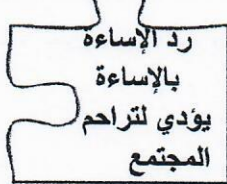 رد الإساءة
بالإساءة
يؤدي لتراحم
المجتمع